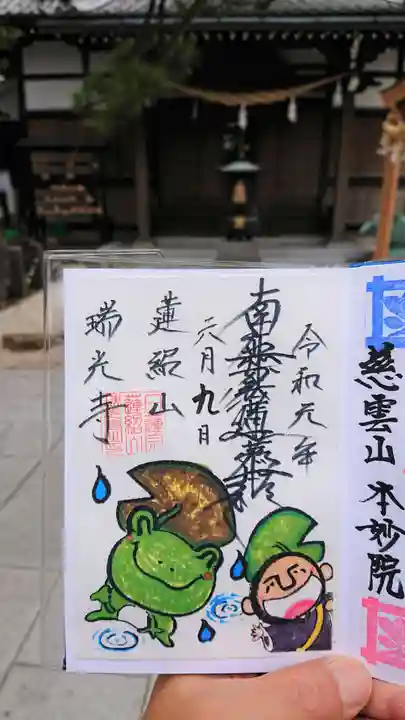 令和元年
南無妙法蓮華経
六月九日
蓮紹山
瑞光寺
慈雲山 本妙院